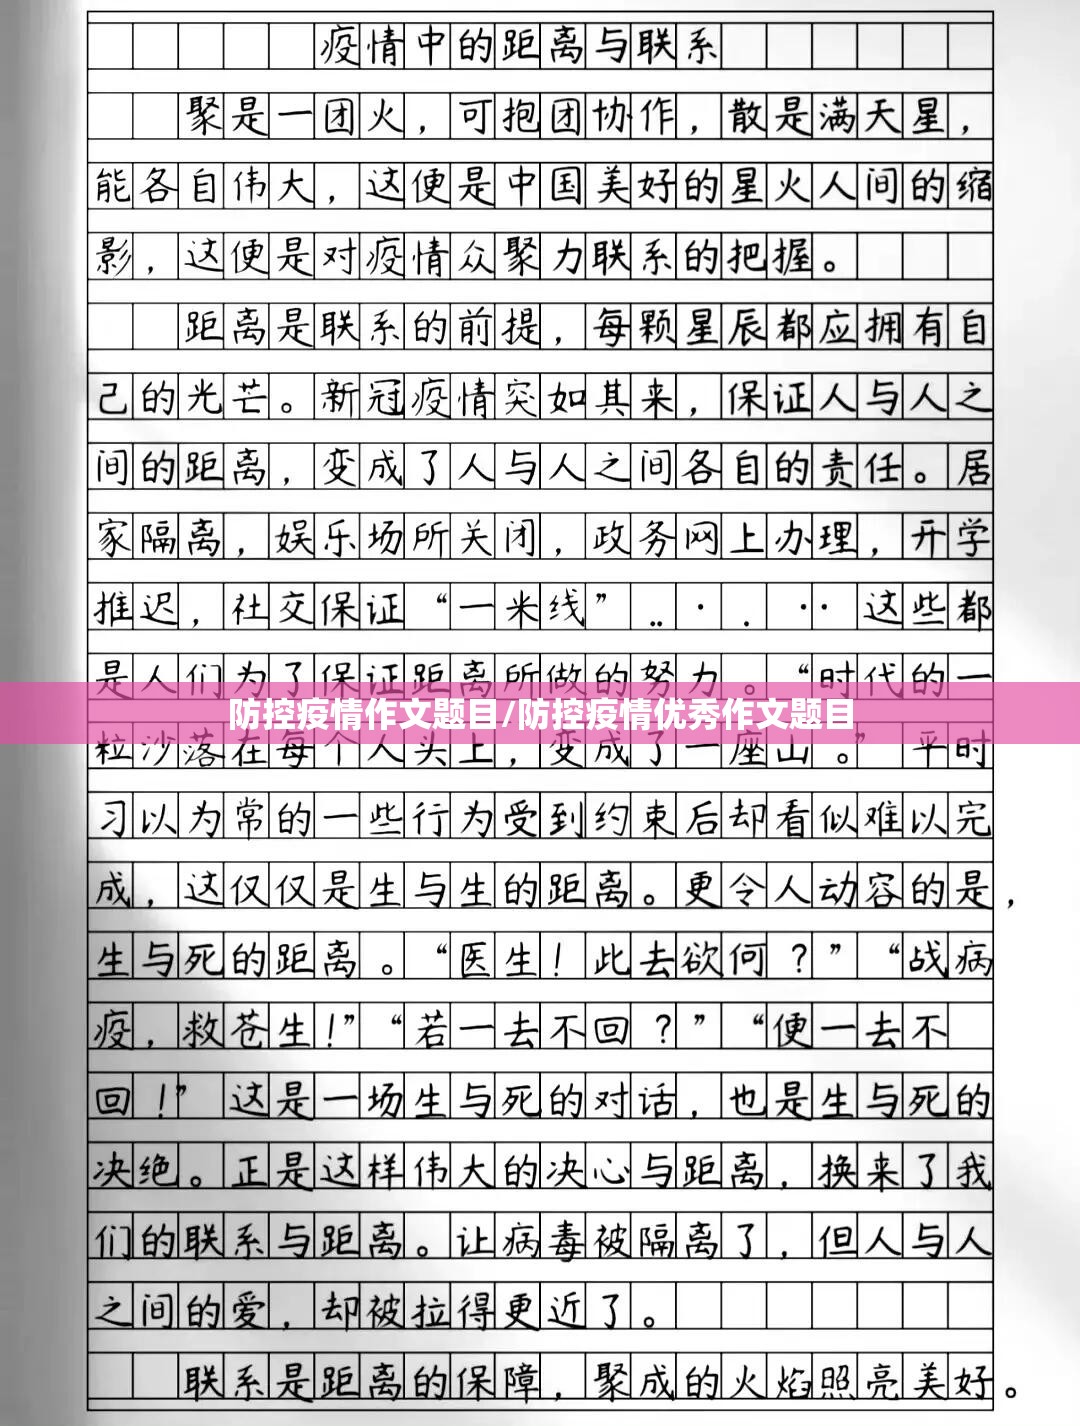 疫情中的距离与联系
聚是一团火，可抱团协作，散是满天星，
能各自伟大，这便是中国美好的星火人间的缩
影，这便是对疫情众聚力联系的把握。
距离是联系的前提，每颗星辰都应拥有自
己的光芒。新冠疫情突如其来，保证人与人之
间的距离，变成了人与人之间各自的责任。居
家隔离，娱乐场所关闭，政务网上办理，开学
推迟，社交保证“一米线”……这些都
是人们为了保证距离所做的努力。“时代的一
防控疫情作文题目/防控疫情优秀作文题目
粒沙落在每个人头上，变成了一座山。”平时
习以为常的一些行为受到约束后却看似难以完
成，这仅仅是生与生的距离。更令人动容的是，
生与死的距离。“医生！此去欲何？”“战病
疫，救苍生！”“若一去不回？”“便一去不
回！”这是一场生与死的对话，也是生与死的
决绝。正是这样伟大的决心与距离，换来了我
们的联系与距离。让病毒被隔离了，但人与人
之间的爱，却被拉得更近了。
联系是距离的保障，聚成的火焰照亮美好。